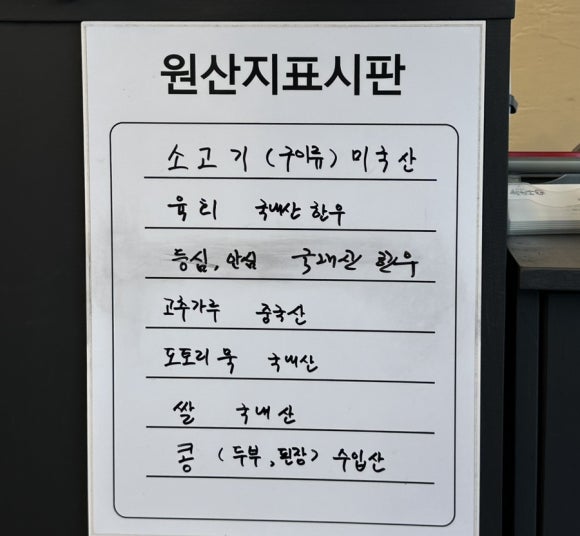 원산지표시판
소고기 (구이류) 미국산
육회 국내산 한우
등심, 안심 국내산 한우
고추가루 중국산
도토리묵 국내산
쌀 국내산
콩 (두부, 된장) 수입산